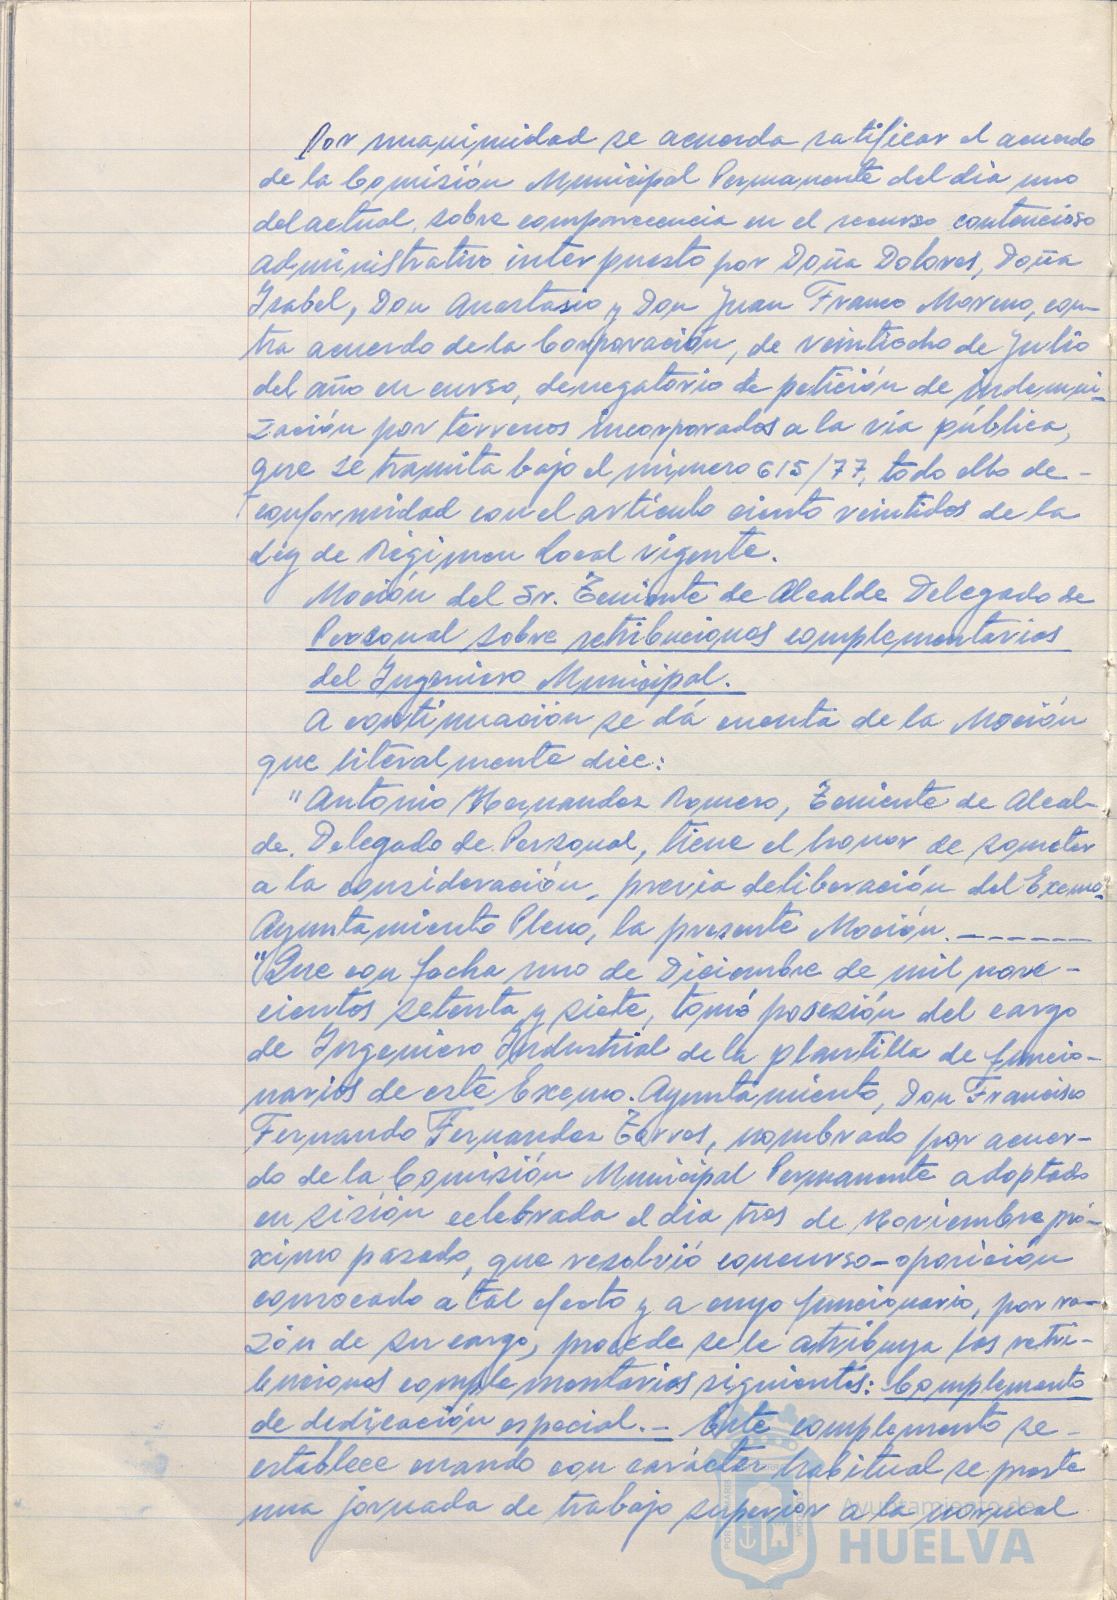 Por unanimidad se acuerda ratificar el acuerdo
de la Comisión Municipal Permanente del dia uno
del actual, sobre comparecencia en el recurso contencioso
administrativo interpuesto por Doña Dolores, Doña
Isabel, Don Anastasio y Don Juan Franco Moreno, con-
tra acuerdo de la Corporación, de veintiocho de Julio
del año en curso, denegatorio de petición de indemni-
zación por terrenos incorporados a la via pública,
que se tramita bajo el número 615/77, todo ello de-
conformidad con el artículo ciento veintidos de la
Ley de Régimen Local vigente.
Moción del Sr. Teniente de Alcalde Delegado de
Personal sobre retribuciones complementarias
del Ingeniero Municipal.
A continuación se dá cuenta de la Moción
que literalmente dice:
"Antonio Hernandez Romero, Teniente de Alcal-
de, Delegado de Personal, tiene el honor de someter
a la consideración, previa deliberación del Excmo.
Ayuntamiento Pleno, la presente Moción. ------
"Que con fecha uno de Diciembre de mil nove-
cientos setenta y siete, tomó posesión del cargo
de Ingeniero Industrial de la plantilla de funcio-
narios de este Excmo. Ayuntamiento, Don Francisco
Fernando Fernandez Zarvos, nombrado por acuer-
do de la Comisión Municipal Permanente adoptado
en sisión celebrada el dia tres de Noviembre pró-
ximo pasado, que resolvió concurso-oposicion
convocado a tal efecto y a cuyo funcionario, por ra-
zón de su cargo, procede se le atribuya las retri-
buciones complementarias siguientes: Complemento
de dedicación especial.- Este complemento se-
establece cuando con carácter habitual se preste
una jornada de trabajo superior a la normal
Ayuntamiento de
HUELVA